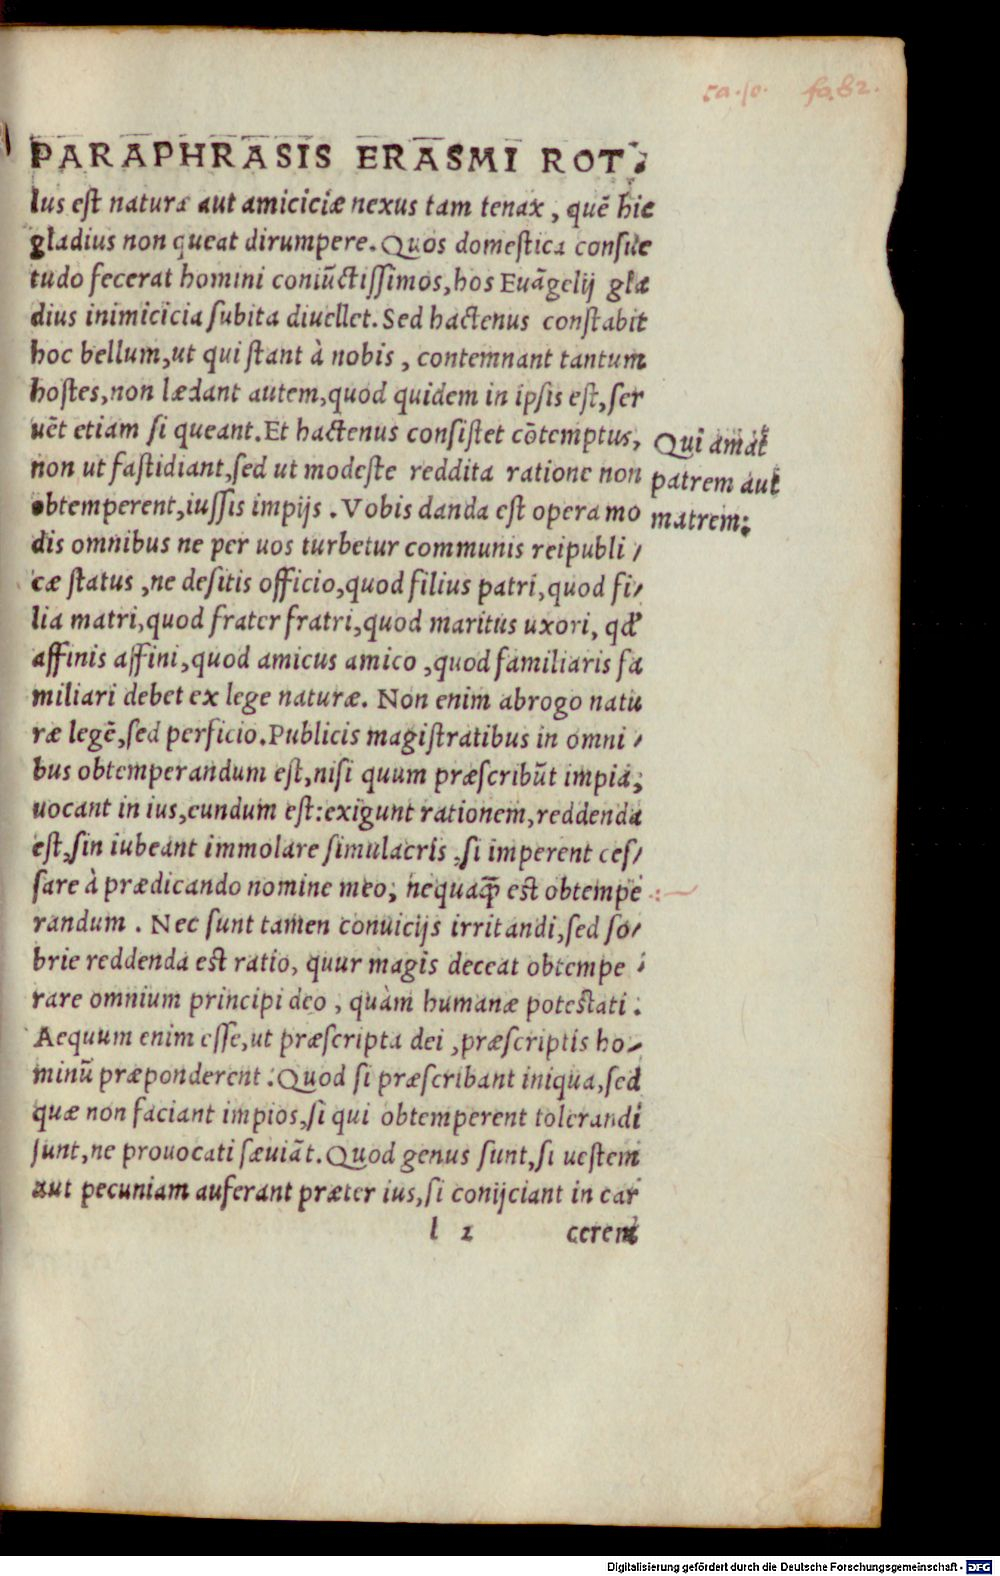 ca. 10. fo. 82.
PARAPHRASIS ERASMI ROT.
lus eſt naturæ aut amiciciæ nexus tam tenax, quē hic
gladius non queat dirumpere. Quos domeſtica conſue
tudo fecerat homini coniūctiſſimos, hos Euāgelij gla
dius inimicicia ſubita diuellet. Sed hactenus conſtabit
hoc bellum, ut qui ſtant à nobis, contemnant tantum
hoſtes, non lædant autem, quod quidem in ipſis eſt, ſer
uēt etiam ſi queant. Et hactenus conſiſtet cōtemptus,
non ut faſtidiant, ſed ut modeſte reddita ratione non
obtemperent, iuſſis impijs. Vobis danda eſt opera mo
dis omnibus ne per uos turbetur communis reipubli /
cæ ſtatus, ne deſitis officio, quod filius patri, quod fi/
lia matri, quod frater fratri, quod maritus uxori, qd'
affinis affini, quod amicus amico, quod familiaris fa
miliari debet ex lege naturæ. Non enim abrogo natu
ræ legē, ſed perficio. Publicis magiſtratibus in omni /
bus obtemperandum eſt, niſi quum præſcribūt impia;
uocant in ius, eundum eſt: exigunt rationem, reddenda
eſt, ſin iubeant immolare ſimulacris, ſi imperent ceſ/
ſare à prædicando nomine meo; nequaq̄ eſt obtempe
randum. Nec ſunt tamen conuicijs irritandi, ſed ſo/
brie reddenda eſt ratio, quur magis deceat obtempe /
rare omnium principi deo, quàm humanæ poteſtati.
Aequum enim eſſe, ut præſcripta dei, præſcriptis ho/
minū præponderent. Quod ſi præſcribant iniqua, ſed
quæ non faciant impios, ſi qui obtemperent tolerandi
ſunt, ne prouocati ſæuiāt. Quod genus ſunt, ſi ueſtem
aut pecuniam auferant præter ius, ſi conijciant in car
l 2 cerem
Qui amat
patrem aut
matrem:
Digitalisierung gefördert durch die Deutsche Forschungsgemeinschaft - DFG